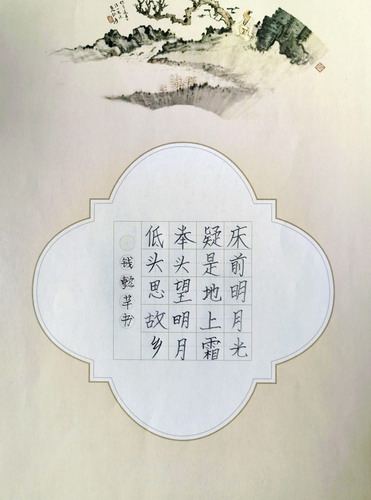 床前明月光
疑是地上霜
举头望明月
低头思故乡
钱懿书